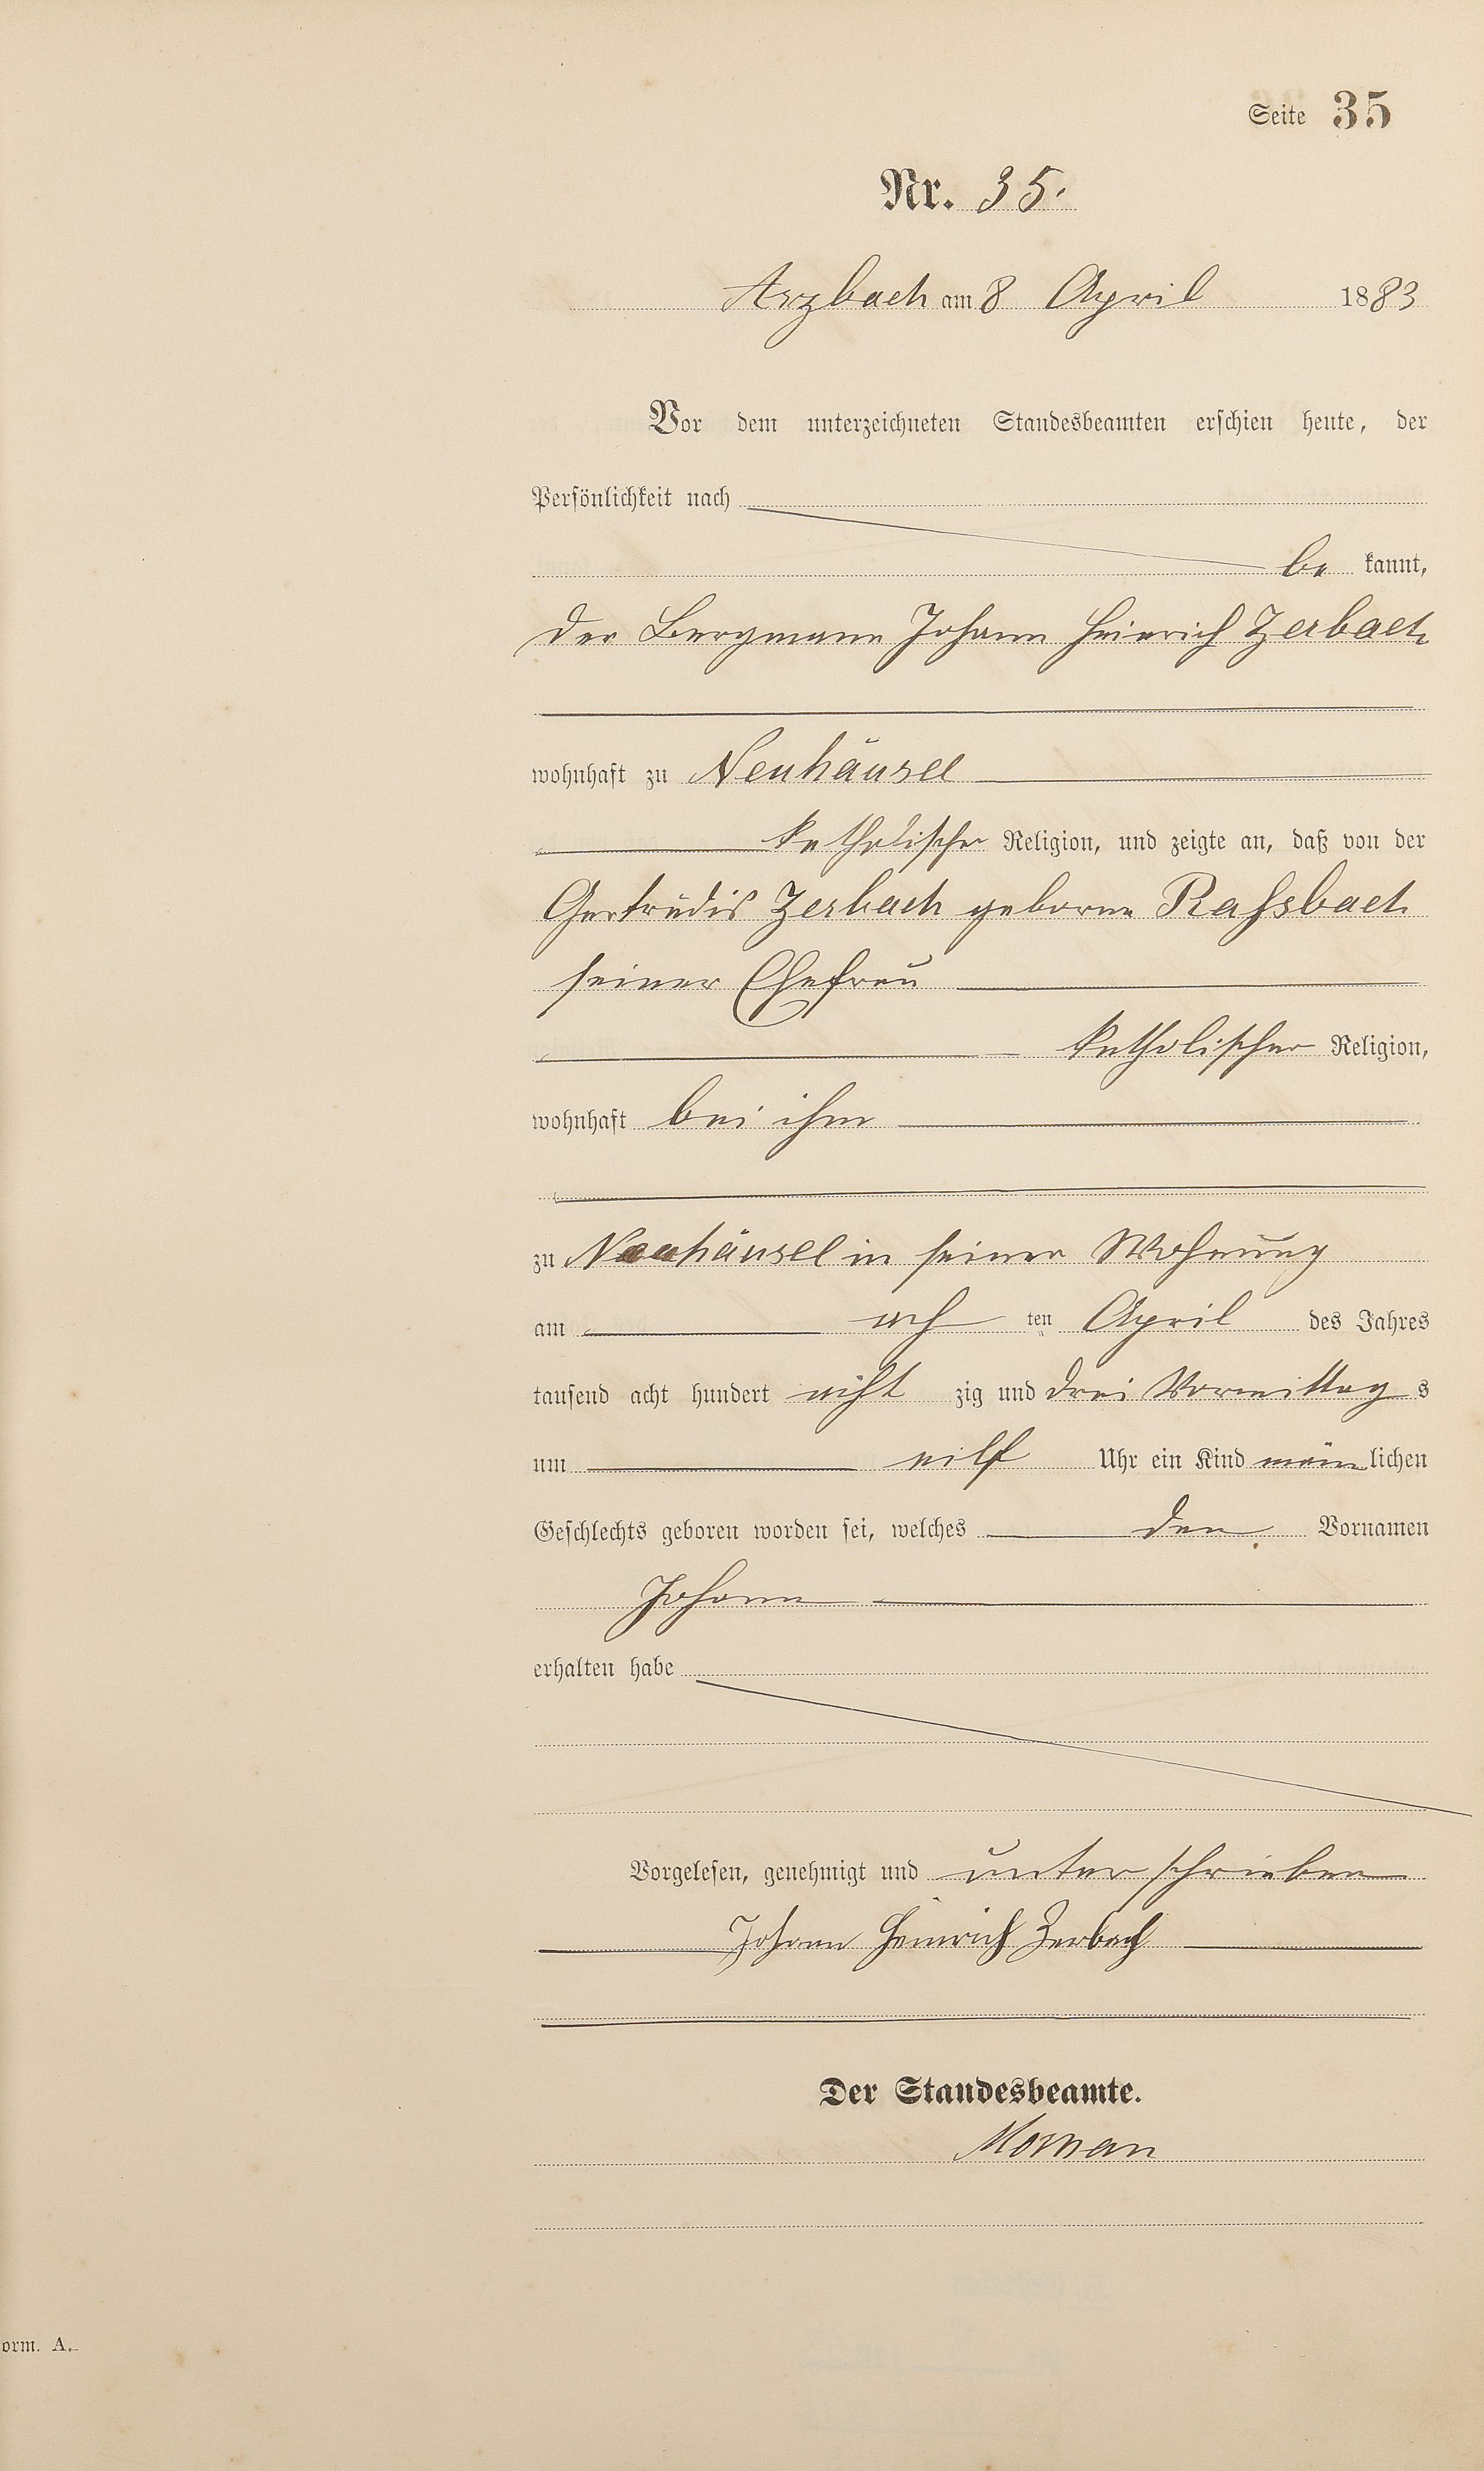 Seite 35
Nr. 35.
Arzbach am 8 April 1883
Vor dem unterzeichneten Standesbeamten erschien heute, der
Persönlichkeit nach
be kannt,
der Bergmann Johann Heinrich Zerbach
wohnhaft zu Neuhäusel
katholischer Religion, und zeigte an, daß von der
Gertrudis Zerbach geborne Rassbach
seiner Ehefrau
katholischer Religion,
wohnhaft bei ihm
zu Neuhäusel in seiner Wohnung
am ach ten April des Jahres
tausend acht hundert acht zig und drei Vormittag s
um eilf Uhr ein Kind männ lichen
Geschlechts geboren worden sei, welches den Vornamen
Johann
erhalten habe
Vorgelesen, genehmigt und unterschrieben
Johann Heinrich Zerbach
Der Standesbeamte.
orm. A.